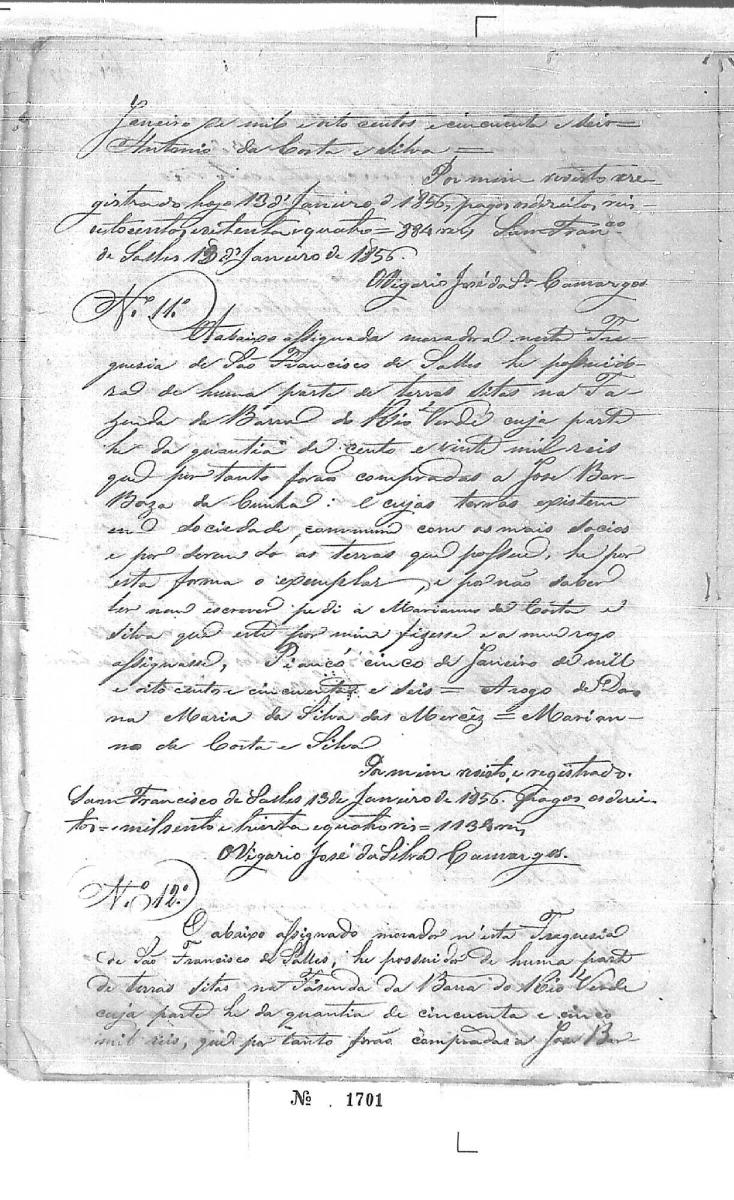 Janeiro de mil e oito centos e cincuenta e seis=
Antonio da Costa e Silva =
Por mim visto e re-
gistrado hoje 13 d'Janeiro d 1856, pagos os direitos, reis
oitocentos e oitenta e quatro = 884 reis, Sam Fran.co
de Salles 13 d' Janeiro de 1856.
O Vigario José da S.a Camargos
N.o 11.o
A abaixo assignada moradora nesta Fre-
guesia de São Francisco de Salles he possuido-
ra de huma parte de terras sitas na Fa-
zenda da Barra do Rio Verde cuja parte
he da quantia de cento e vinte mil reis
que por tanto forão compradas a Jose Bar-
Boza da Cunha: e cujas terras existem
em sociedade commum com os mais socios
e por serem só as terras que possue, he por
esta forma o exemplar, e por não saber
ler nem escrever pedi a Marianno da Costa e
Silva que este por mim fizesse e a meu rogo
assignasse, Piancó cinco de Janeiro de mill
e oito cento e cincuenta e seis = Arogo de Do-
na Maria da Silva das Mercêz = Marian-
no da Costa e Silva
Por mim visto, e registrado.
Sam Francisco de Salles 13 de Janeiro de 1856. pagos os derei-
tos = mil sento e trinta e quatro reis = 1134 reis,
O Vigario José da Silva Camargos.
N.o 12.o
O abaixo assignado morador n'esta Freguesia
de São Francisco de Salles, he possuidor de huma parte
de terras sitas na Fazenda da Barra do Rio Verde
cuja parte he da quantia de cincuenta e cinco
mil reis, que por tanto forão compradas a Jose Bar-
No . 1701